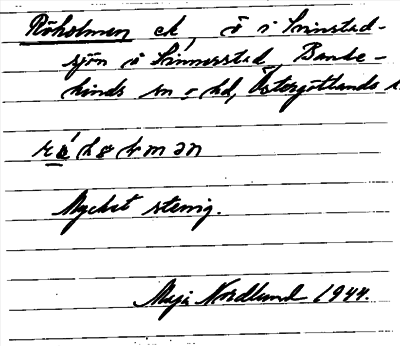 Röholmen ek, ö i Sinnstad-
sjön ö Sinnerstad, Banke-
kinds sn o hd, Östergötlands
Mycket stenig.
Maja Nordlund 1944.